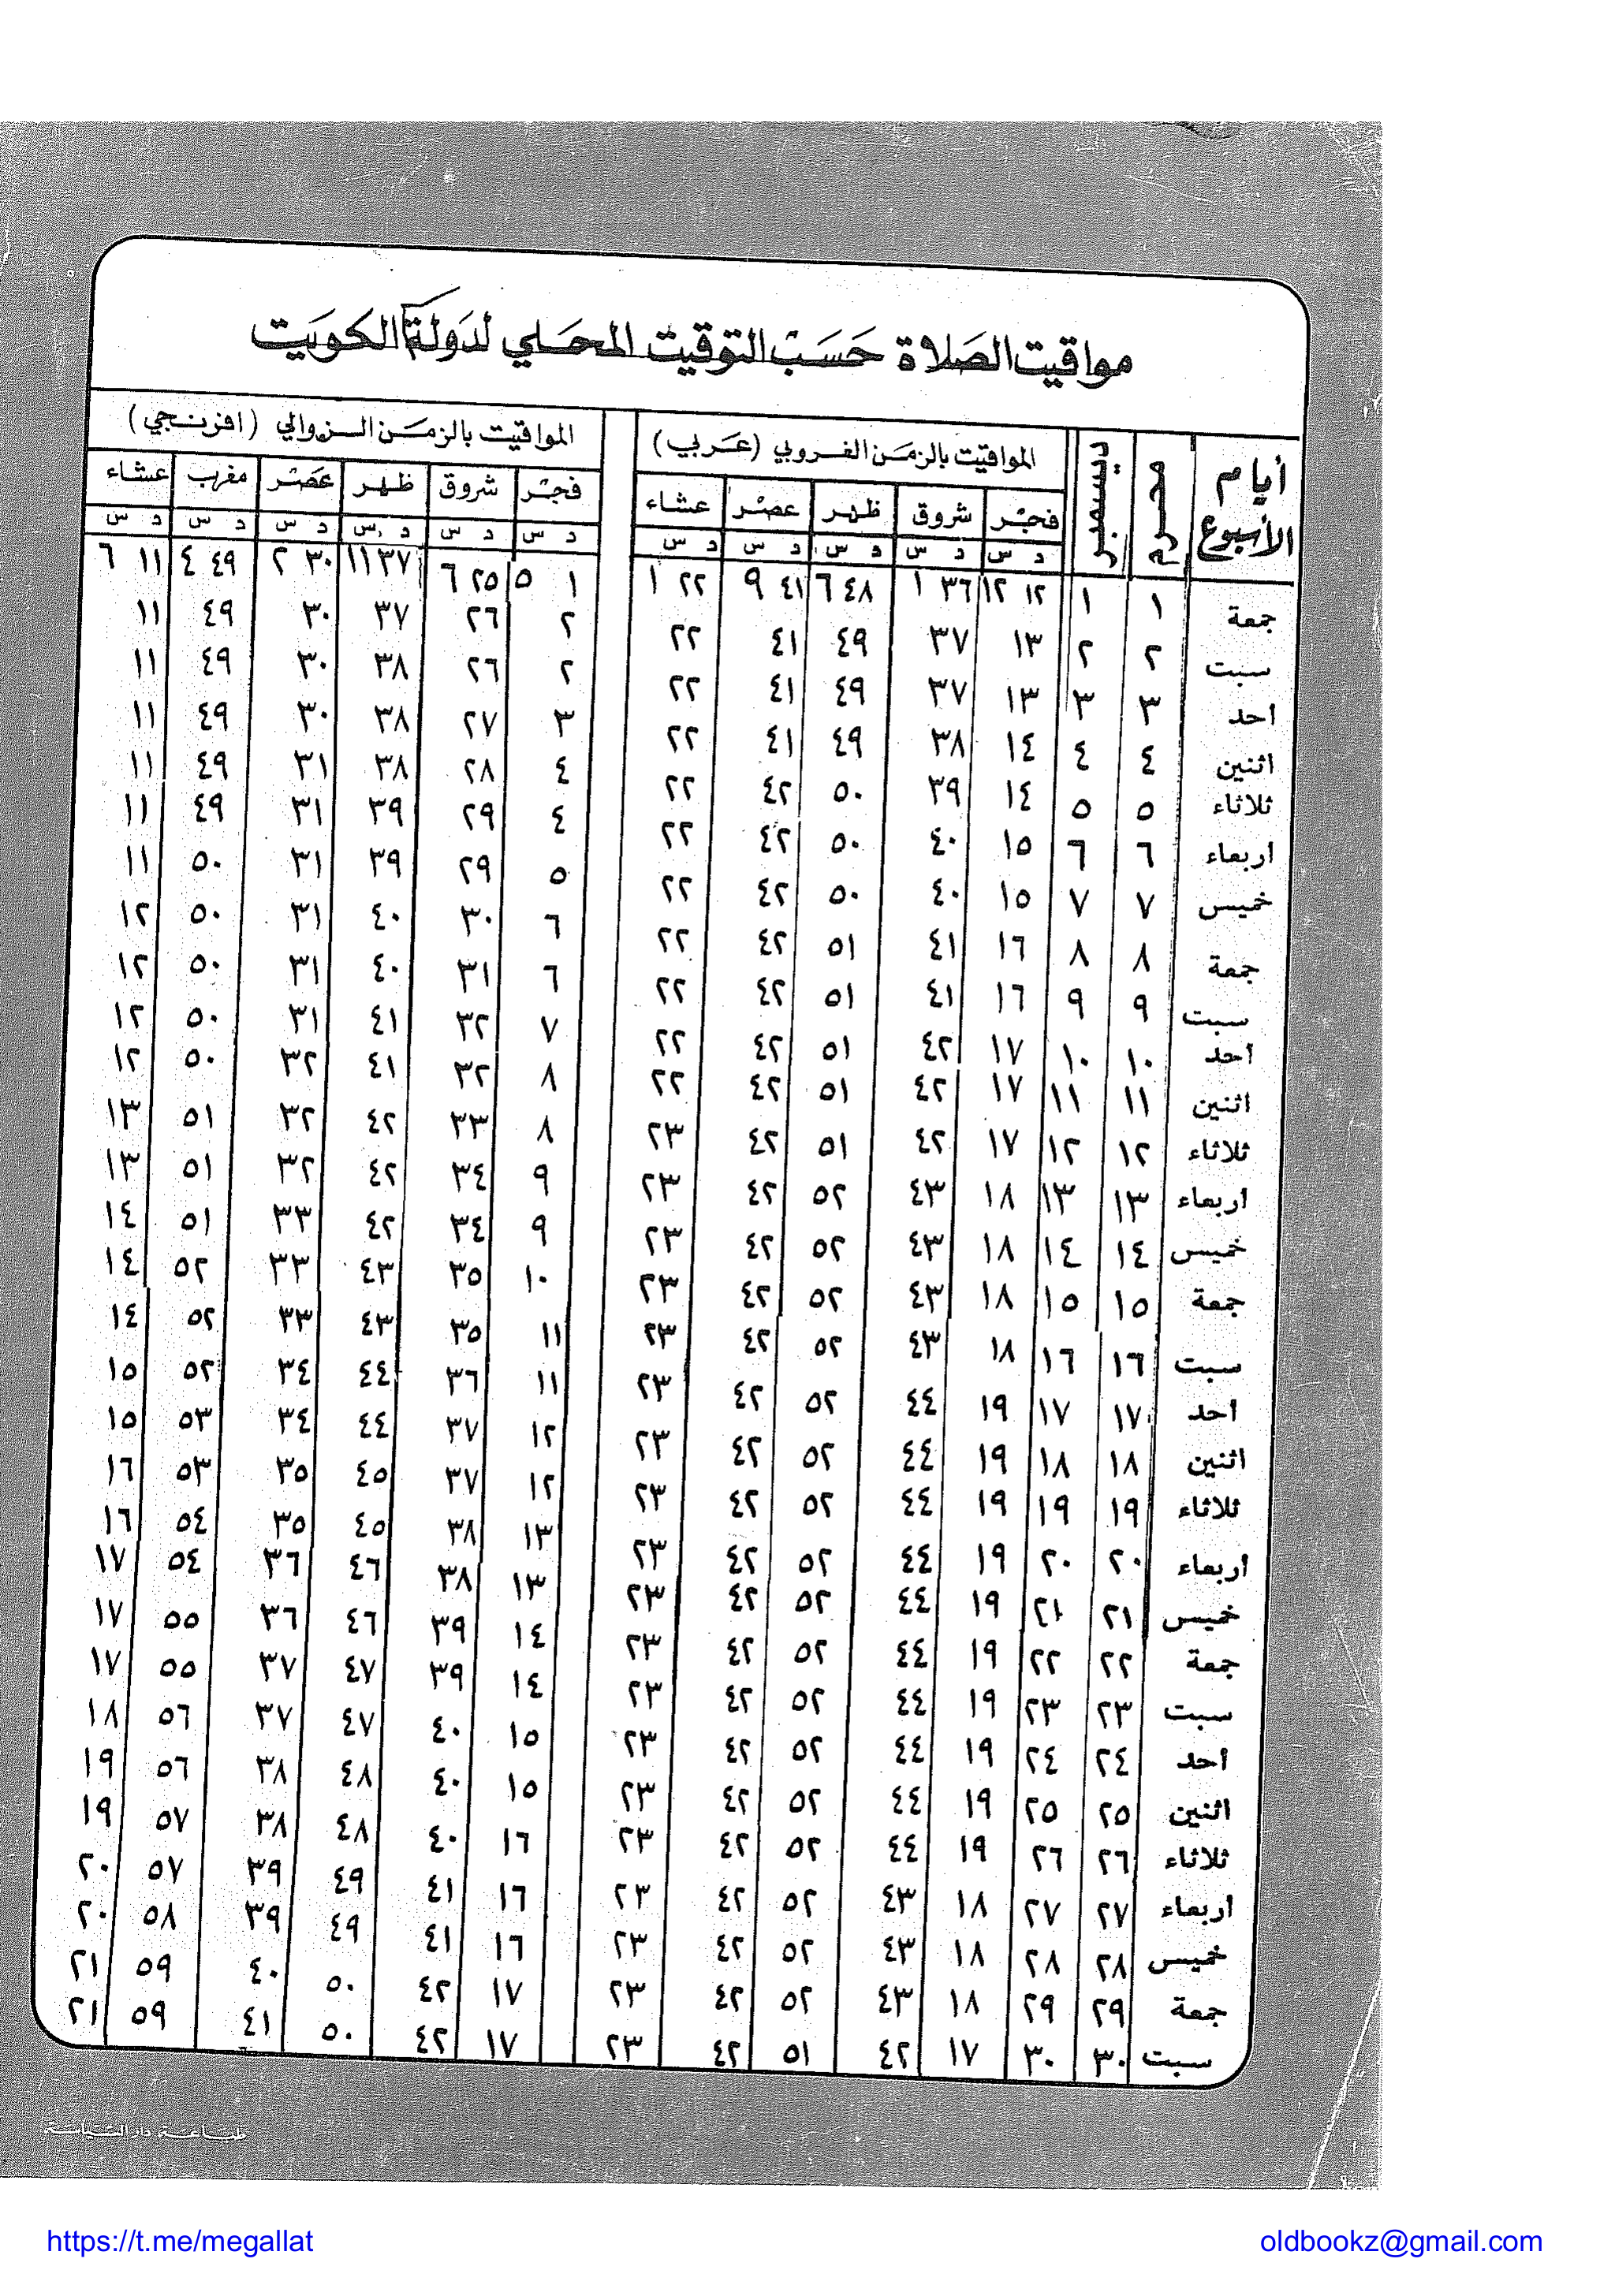 مواقيت الصلاة حسب التوقيت المحلي لدولة الكويت
أيام الأسبوع محرم ديسمبر المواقيت بالزمن الغروبي (عربي) المواقيت بالزمن الزوالي (افرنجي)
فجر شروق ظهر عصر عشاء فجر شروق ظهر عصر مغرب عشاء
د س د س د س د س د س د س د س د س د س د س د س
جمعة ١ ١ ١٢ ١٢ ٣٦ ١ ٤٨ ٦ ٤١ ٩ ٢٢ ١ ١ ٥ ٢٥ ٦ ٣٧ ١١ ٣٠ ٢ ٤٩ ٤ ١١ ٦
سبت ٢ ٢ ١٣ ٣٧ ٤٩ ٤١ ٢٢ ٢ ٢٦ ٣٧ ٣٠ ٤٩ ١١
احد ٣ ٣ ١٣ ٣٧ ٤٩ ٤١ ٢٢ ٢ ٢٦ ٣٨ ٣٠ ٤٩ ١١
اثنين ٤ ٤ ١٤ ٣٨ ٤٩ ٤١ ٢٢ ٣ ٢٧ ٣٨ ٣٠ ٤٩ ١١
ثلاثاء ٥ ٥ ١٤ ٣٩ ٥٠ ٤٢ ٢٢ ٤ ٢٨ ٣٨ ٣١ ٤٩ ١١
اربعاء ٦ ٦ ١٥ ٤٠ ٥٠ ٤٢ ٢٢ ٤ ٢٩ ٣٩ ٣١ ٤٩ ١١
خميس ٧ ٧ ١٥ ٤٠ ٥٠ ٤٢ ٢٢ ٥ ٢٩ ٣٩ ٣١ ٥٠ ١١
جمعة ٨ ٨ ١٦ ٤١ ٥١ ٤٢ ٢٢ ٦ ٣٠ ٤٠ ٣١ ٥٠ ١٢
سبت ٩ ٩ ١٦ ٤١ ٥١ ٤٢ ٢٢ ٦ ٣١ ٤٠ ٣١ ٥٠ ١٢
احد ١٠ ١٠ ١٧ ٤٢ ٥١ ٤٢ ٢٢ ٧ ٣٢ ٤١ ٣١ ٥٠ ١٢
اثنين ١١ ١١ ١٧ ٤٢ ٥١ ٤٢ ٢٢ ٨ ٣٢ ٤١ ٣٢ ٥٠ ١٢
ثلاثاء ١٢ ١٢ ١٧ ٤٢ ٥١ ٤٢ ٢٣ ٨ ٣٣ ٤٢ ٣٢ ٥١ ١٣
اربعاء ١٣ ١٣ ١٨ ٤٣ ٥٢ ٤٢ ٢٣ ٩ ٣٤ ٤٢ ٣٢ ٥١ ١٣
خميس ١٤ ١٤ ١٨ ٤٣ ٥٢ ٤٢ ٢٣ ٩ ٣٤ ٤٢ ٣٣ ٥١ ١٤
جمعة ١٥ ١٥ ١٨ ٤٣ ٥٢ ٤٢ ٢٣ ١٠ ٣٥ ٤٣ ٣٣ ٥٢ ١٤
سبت ١٦ ١٦ ١٨ ٤٣ ٥٢ ٤٢ ٢٣ ١١ ٣٥ ٤٣ ٣٣ ٥٢ ١٤
احد ١٧ ١٧ ١٩ ٤٤ ٥٢ ٤٢ ٢٣ ١١ ٣٦ ٤٤ ٣٤ ٥٢ ١٥
اثنين ١٨ ١٨ ١٩ ٤٤ ٥٢ ٤٢ ٢٣ ١٢ ٣٧ ٤٤ ٣٤ ٥٣ ١٥
ثلاثاء ١٩ ١٩ ١٩ ٤٤ ٥٢ ٤٢ ٢٣ ١٢ ٣٧ ٤٥ ٣٥ ٥٣ ١٦
اربعاء ٢٠ ٢٠ ١٩ ٤٤ ٥٢ ٤٢ ٢٣ ١٣ ٣٨ ٤٥ ٣٥ ٥٤ ١٦
خميس ٢١ ٢١ ١٩ ٤٤ ٥٢ ٤٢ ٢٣ ١٣ ٣٨ ٤٦ ٣٦ ٥٤ ١٧
جمعة ٢٢ ٢٢ ١٩ ٤٤ ٥٢ ٤٢ ٢٣ ١٤ ٣٩ ٤٦ ٣٦ ٥٥ ١٧
سبت ٢٣ ٢٣ ١٩ ٤٤ ٥٢ ٤٢ ٢٣ ١٤ ٣٩ ٤٧ ٣٧ ٥٥ ١٧
احد ٢٤ ٢٤ ١٩ ٤٤ ٥٢ ٤٢ ٢٣ ١٥ ٤٠ ٤٧ ٣٧ ٥٦ ١٨
اثنين ٢٥ ٢٥ ١٩ ٤٤ ٥٢ ٤٢ ٢٣ ١٥ ٤٠ ٤٨ ٣٨ ٥٦ ١٩
ثلاثاء ٢٦ ٢٦ ١٩ ٤٤ ٥٢ ٤٢ ٢٣ ١٦ ٤٠ ٤٨ ٣٨ ٥٧ ١٩
اربعاء ٢٧ ٢٧ ١٨ ٤٣ ٥٢ ٤٢ ٢٣ ١٦ ٤١ ٤٩ ٣٩ ٥٧ ٢٠
خميس ٢٨ ٢٨ ١٨ ٤٣ ٥٢ ٤٢ ٢٣ ١٦ ٤١ ٤٩ ٣٩ ٥٨ ٢٠
جمعة ٢٩ ٢٩ ١٨ ٤٣ ٥٢ ٤٢ ٢٣ ١٧ ٤٢ ٥٠ ٤٠ ٥٩ ٢١
سبت ٣٠ ٣٠ ١٧ ٤٢ ٥١ ٤٢ ٢٣ ١٧ ٤٢ ٥٠ ٤١ ٥٩ ٢١
طباعة دار السياسة
https://t.me/megallat
oldbookz@gmail.com